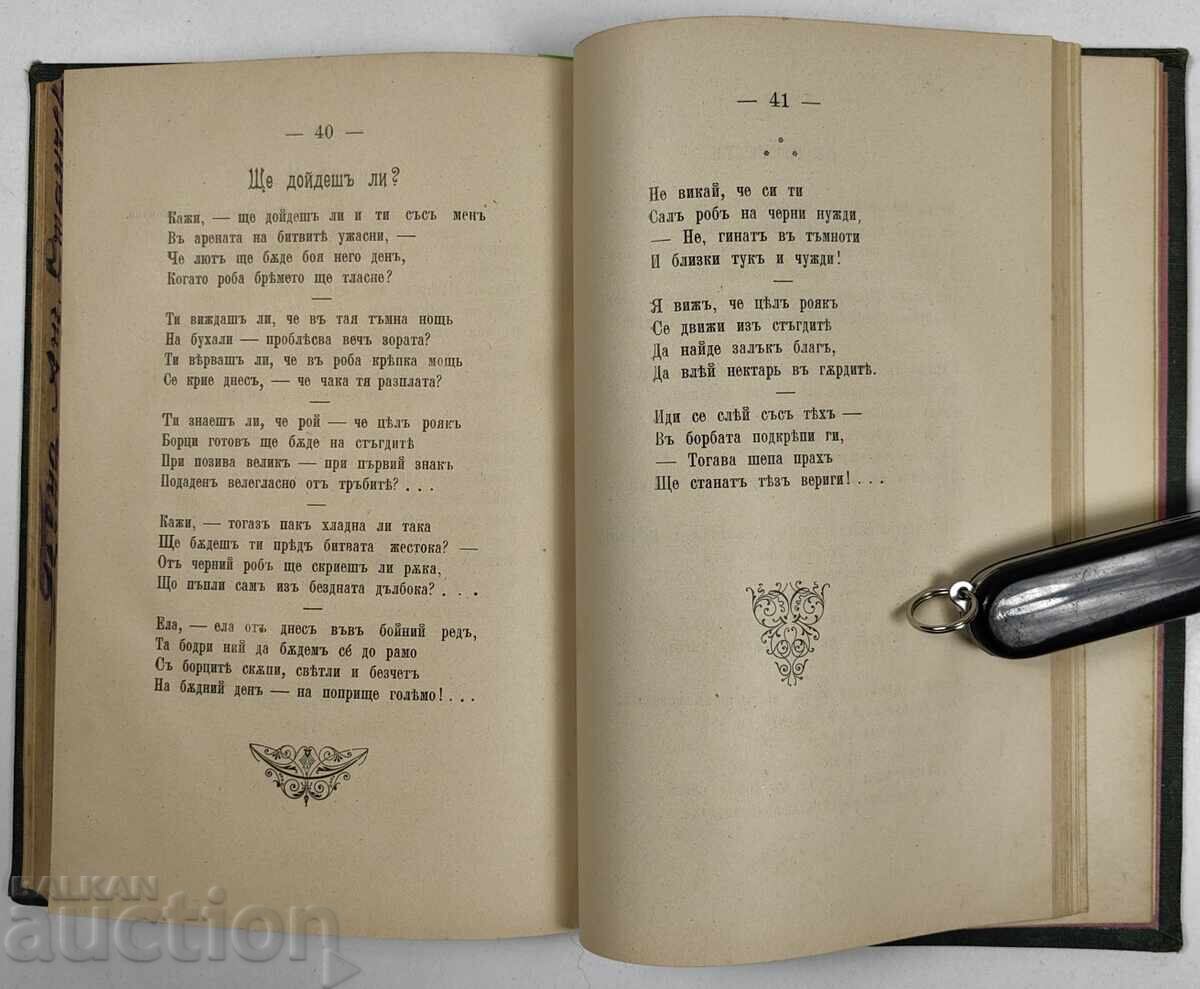 — 40 —
Ще дойдешъ ли?
Кажи, — ще дойдешъ ли и ти съсъ менъ
Въ арената на битвитѣ ужасни, —
Че лютъ ще бѫде боя него денъ,
Когато роба брѣмето ще тласне?
Ти виждашъ ли, че въ тая тъмна нощь
На бухали — проблѣсва вечъ зората?
Ти вѣрвашъ ли, че въ роба крѣпка мощь
Се крие днесъ, — че чака тя разплата?
Ти знаешъ ли, че рой — че цѣлъ роякъ
Борци готовъ ще бѫде на стъгдитѣ
При позива великъ — при първий знак
Подаденъ велегласно отъ тръбитѣ? . . .
Кажи, — тогазъ пакъ хладна ли така
Ще бѫдешъ ти прѣдъ битвата жестока? —
Отъ черний робъ ще скриешъ ли рѫка,
Що пъпли самъ изъ бездната дълбока? . . .
Ела, — ела отъ днесъ във бойний редъ,
Та бодри ний да бѫдемъ се́ до рамо
Съ борцитѣ скѫпи, свѣтли и безчетъ
На бѫдний денъ — на поприще голѣмо! . . .
— 41 —
* * *
Не викай, че си ти
Салъ робъ на черни нужди,
— Не, гинатъ въ тъмноти
И близки тукъ и чужди!
Я вижъ, че цѣлъ роякъ
Се движи изъ стъгдитѣ
Да найде залъкъ благъ,
Да влѣй нектарь въ гѫрдитѣ.
Иди се слѣй съсъ тѣхъ —
Въ борбата подкрѣпи ги,
— Тогава шепа прахъ
Ще станатъ тѣзъ вериги! . . .
BALKAN
auction